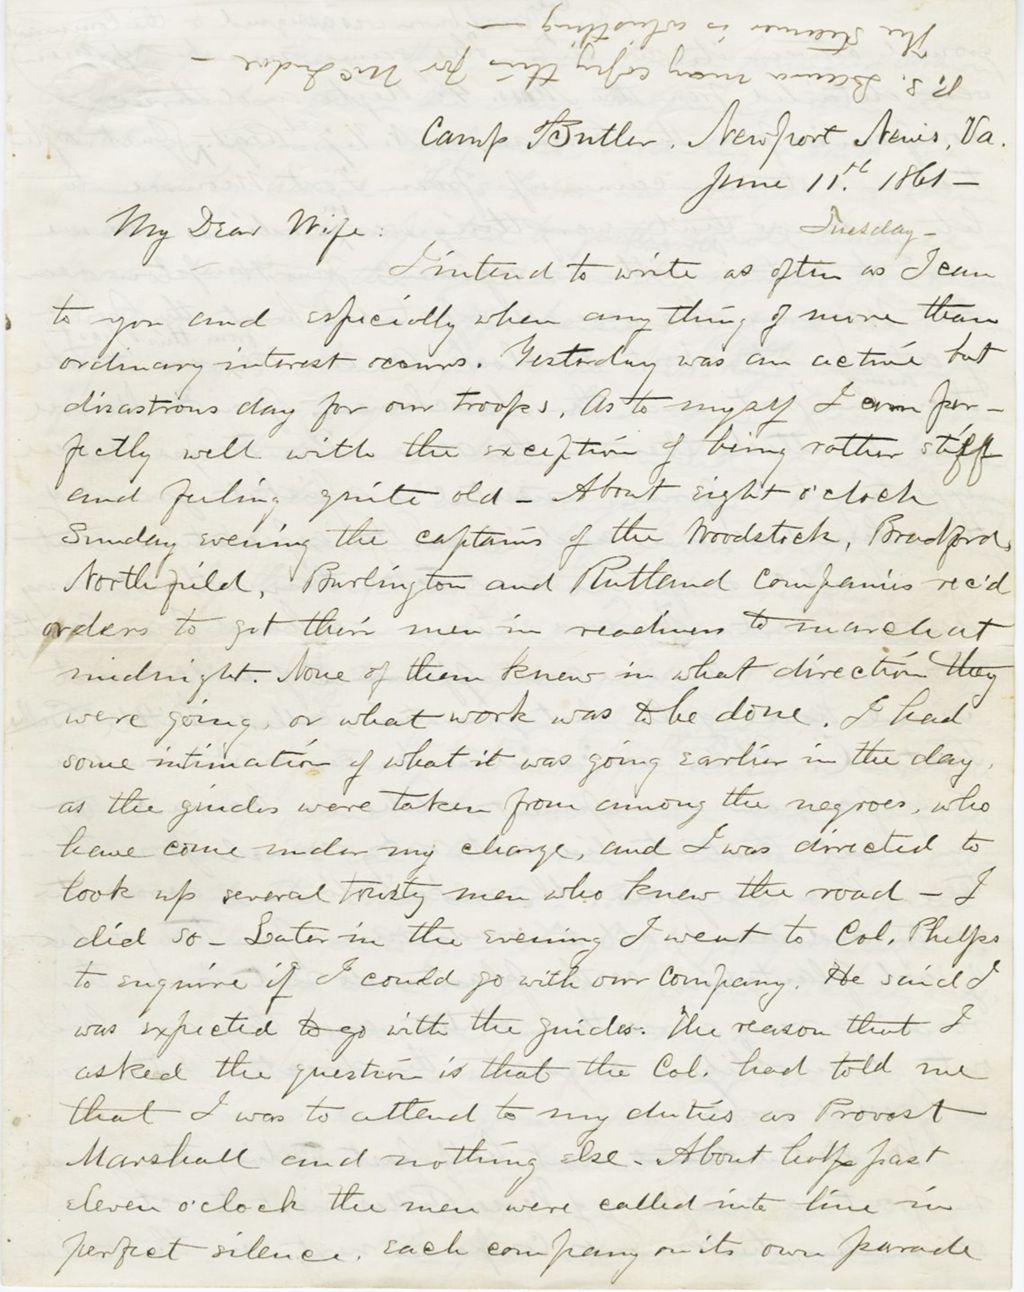 P.S. Laura may copy this for Mr. Indoe —
The steamer is whistling —
Camp Butler, Newport News, Va.
June 11th. 1861 —
Tuesday —
My Dear Wife:
I intend to write as often as I can
to you and especially when any thing of more than
ordinary interest occurs. Yesterday was an active but
disastrous day for our troops. As to myself I am per-
fectly well with the exception of being rather stiff
and feeling quite old — About eight o'clock
Sunday evening the captains of the Woodstock, Bradford,
Northfield, Burlington and Rutland Companies rec'd
orders to get their men in readiness to march at
midnight. None of them knew in what direction they
were going, or what work was to be done. I had
some intimation of what it was going earlier in the day,
as the guides were taken from among the negroes, who
have come under my charge, and I was directed to
look up several trusty men who knew the road — I
did so — Later in the evening I went to Col. Phelps
to enquire if I could go with our Company. He said I
was expected to go with the guides. The reason that I
asked the question is that the Col. had told me
that I was to attend to my duties as Provost
Marshall and nothing else. About half past
eleven o'clock the men were called into line in
perfect silence, each company on its own parade